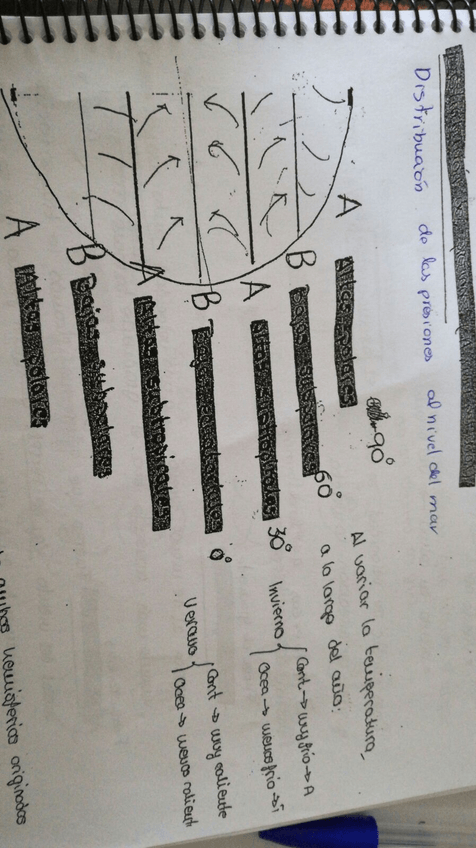 Distribución de las presiones al nivel del mar
A Altas polares 90°
B Bajas subpolares 60°
A Altas subtropicales 30°
B Bajas ecuatoriales 0°
A Altas subtropicales
B Bajas subpolares
A Altas polares
Al variar la temperatura,
a lo largo del año:
Invierno { Cont → muy frío → A
Ocea → menos frío →
Verano { Cont → muy caliente
Ocea → menos calient
ambos hemisferios originados